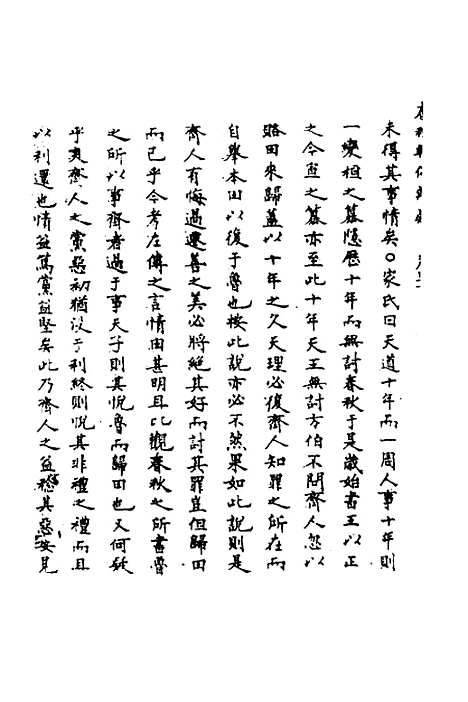 未得其事情矣○家氏曰天道十年而一周人事十年則
一變桓之篡隱歷十年而無討春秋于是歲始書王以正
之今宣之篡亦至此十年天王無討方伯不問齊人忽以
賂田來歸蓋以十年之久天理必復齊人知罪之所在而
自舉本田以復于魯也按此說亦必不然果如此說則是
齊人有悔過遷善之美必將絕其好而討其罪豈但歸田
而已乎今考左傳之言情由甚明且比觀春秋之所書魯
之所以事齊者過于事天子則其悅魯而歸田也又何疑
乎夫齊人之黨惡初猶汲于利終則悅其非禮之禮而且
以利還也情益篤黨益堅矣此乃齊人之益稔其惡安見